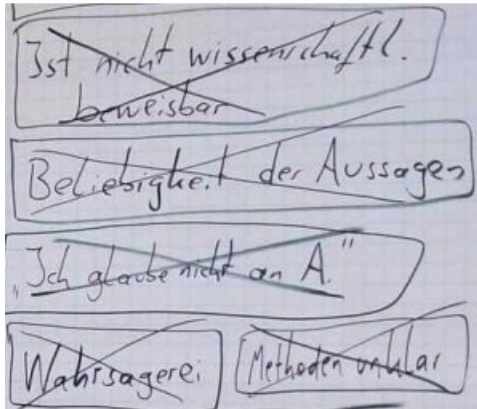 Ist nicht wissenschaftl.
beweisbar
Beliebigkeit der Aussagen
„Ich glaube nicht an A."
Wahrsagerei
Methoden unklar